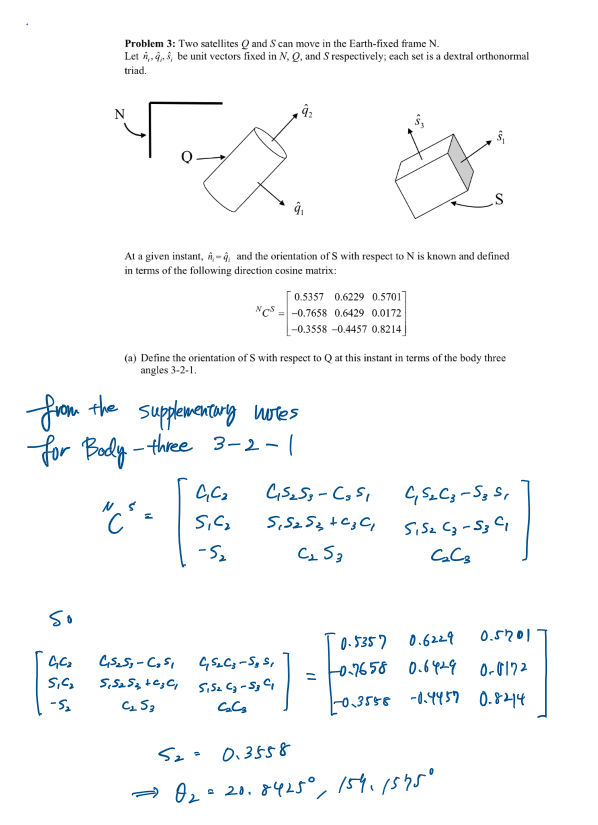 Problem 3: Two satellites Q and S can move in the Earth-fixed frame N.
Let n̂ᵢ, q̂ᵢ, ŝᵢ be unit vectors fixed in N, Q, and S respectively; each set is a dextral orthonormal
triad.
N
q̂₂
Q
q̂₁
ŝ₃
ŝ₁
S
At a given instant, n̂ᵢ = q̂ᵢ and the orientation of S with respect to N is known and defined
in terms of the following direction cosine matrix:
0.5357 0.6229 0.5701
ᴺCˢ = -0.7658 0.6429 0.0172
-0.3558 -0.4457 0.8214
(a) Define the orientation of S with respect to Q at this instant in terms of the body three
angles 3-2-1.
from the supplementary notes
for Body-three 3-2-1
C₁C₂ C₁S₂S₃ - C₃S₁ C₁S₂C₃ - S₃S₁
ᴺCˢ = S₁C₂ S₁S₂S₃ + C₃C₁ S₁S₂C₃ - S₃C₁
-S₂ C₂S₃ C₂C₃
So
C₁C₂ C₁S₂S₃ - C₃S₁ C₁S₂C₃ - S₃S₁ 0.5357 0.6229 0.5701
S₁C₂ S₁S₂S₃ + C₃C₁ S₁S₂C₃ - S₃C₁ = -0.7658 0.6429 0.0172
-S₂ C₂S₃ C₂C₃ -0.3558 -0.4457 0.8214
S₂ = 0.3558
⇒ θ₂ = 20.8425°, 159.1575°